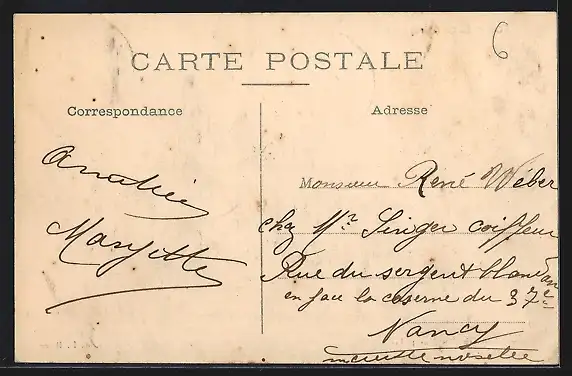 6
CARTE POSTALE
Correspondance
Adresse
Amitiés
Monsieur René Wéber
chez Mr. Singer coiffeur
Rue du sergent blandan
en face la caserne du 37e
Nancy
meurthe moselle